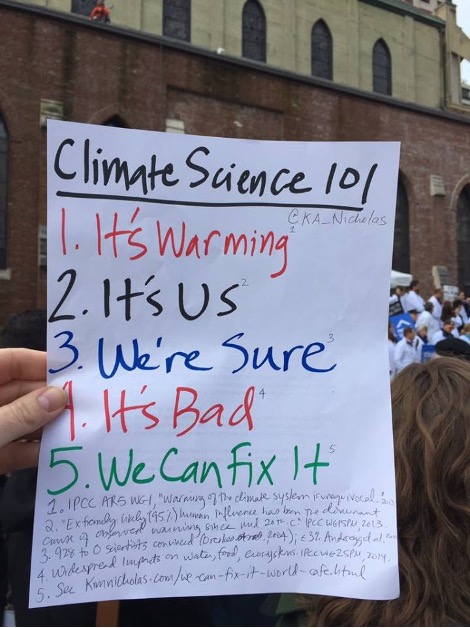 Climate Science 101
@KA_Nicholas
1. It's Warming 1
2. It's Us 2
3. We're Sure 3
4. It's Bad 4
5. We Can Fix It 5
1. IPCC AR5 WG1, "Warming of the climate system is unequivocal." 2013
2. "Extremely likely (95%) human influence has been the dominant
cause of observed warming since mid 20th c." IPCC WG1SPM, 2013.
3. 928 to 0 scientists convinced (Oreskes 2004);
4. Widespread impacts on water, food, ecosystems. IPCC WG2SPM, 2014.
5. See Kimnicholas.com/we-can-fix-it-world-cafe.html